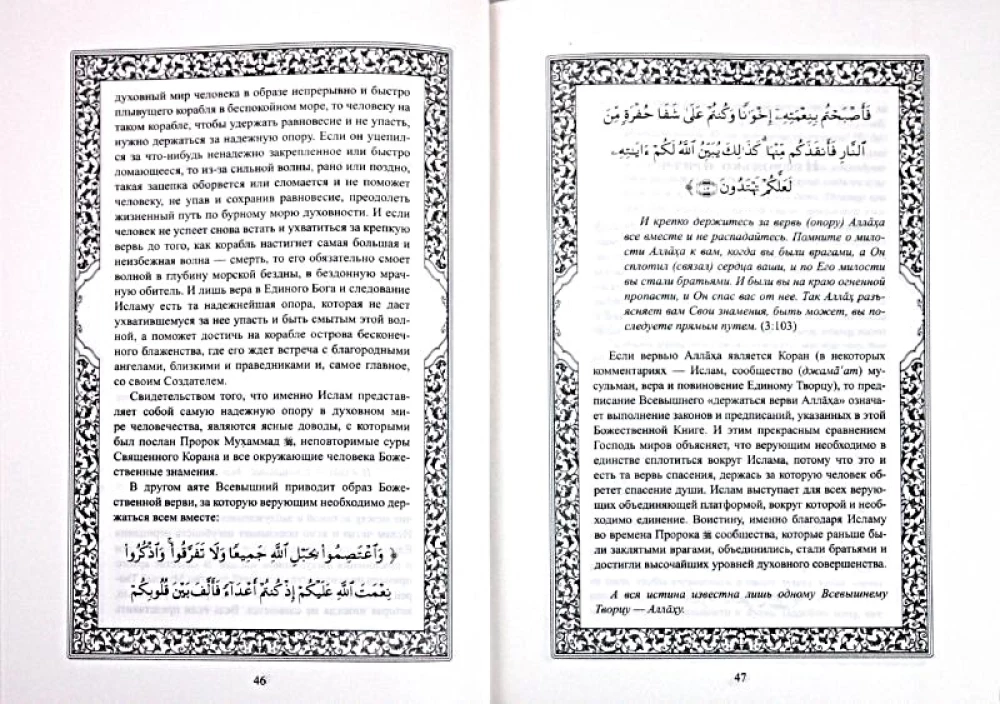 духовный мир человека в образе непрерывно и быстро
плывущего корабля в беспокойном море, то человеку на
таком корабле, чтобы удержать равновесие и не упасть,
нужно держаться за надежную опору. Если он уцепил-
ся за что-нибудь ненадежно закрепленное или быстро
ломающееся, то из-за сильной волны, рано или поздно,
такая зацепка оборвется или сломается и не поможет
человеку, не упав и сохранив равновесие, преодолеть
жизненный путь по бурному морю духовности. И если
человек не успеет снова встать и ухватиться за крепкую
вервь до того, как корабль настигнет самая большая и
неизбежная волна — смерть, то его обязательно смоет
волной в глубину морской бездны, в бездонную мрач-
ную обитель. И лишь вера в Единого Бога и следование
Исламу есть та надежнейшая опора, которая не даст
ухватившемуся за нее упасть и быть смытым этой вол-
ной, а поможет достичь на корабле острова бесконеч-
ного блаженства, где его ждет встреча с благородными
ангелами, близкими и праведниками и, самое главное,
со своим Создателем.
Свидетельством того, что именно Ислам представ-
ляет собой самую надежную опору в духовном ми-
ре человечества, являются ясные доводы, с которыми
был послан Пророк Мухаммад ﷺ, неповторимые суры
Священного Корана и все окружающие человека Боже-
ственные знамения.
В другом аяте Всевышний приводит образ Боже-
ственной верви, за которую верующим необходимо дер-
жаться всем вместе:
﴿ وَٱعْتَصِمُوا۟ بِحَبْلِ ٱللَّهِ جَمِيعًا وَلَا تَفَرَّقُوا۟ وَٱذْكُرُوا۟
نِعْمَتَ ٱللَّهِ عَلَيْكُمْ إِذْ كُنتُمْ أَعْدَآءً فَأَلَّفَ بَيْنَ قُلُوبِكُمْ
46
فَأَصْبَحْتُم بِنِعْمَتِهِۦٓ إِخْوَٰنًا وَكُنتُمْ عَلَىٰ شَفَا حُفْرَةٍ مِّنَ
ٱلنَّارِ فَأَنقَذَكُم مِّنْهَا ۗ كَذَٰلِكَ يُبَيِّنُ ٱللَّهُ لَكُمْ ءَايَٰتِهِۦ
لَعَلَّكُمْ تَهْتَدُونَ ﴿١٠٣﴾ ﴾
И крепко держитесь за вервь (опору) Алла̄ха
все вместе и не распадайтесь. Помните о мило-
сти Алла̄ха к вам, когда вы были врагами, а Он
сплотил (связал) сердца ваши, и по Его милости
вы стали братьями. И были вы на краю огненной
пропасти, и Он спас вас от нее. Так Алла̄х разъ-
ясняет вам Свои знамения, быть может, вы по-
следуете прямым путем. (3:103)
Если вервью Алла̄ха является Коран (в некоторых
комментариях — Ислам, сообщество (джама̄‘ат) му-
сульман, вера и повиновение Единому Творцу), то пред-
писание Всевышнего «держаться верви Алла̄ха» означа-
ет выполнение законов и предписаний, указанных в этой
Божественной Книге. И этим прекрасным сравнением
Господь миров объясняет, что верующим необходимо в
единстве сплотиться вокруг Ислама, потому что это и
есть та вервь спасения, держась за которую человек об-
ретет спасение души. Ислам выступает для всех верую-
щих объединяющей платформой, вокруг которой и необ-
ходимо единение. Воистину, именно благодаря Исламу
во времена Пророка ﷺ сообщества, которые раньше бы-
ли заклятыми врагами, объединились, стали братьями и
достигли высочайших уровней духовного совершенства.
А вся истина известна лишь одному Всевышнему
Творцу — Алла̄ху.
47